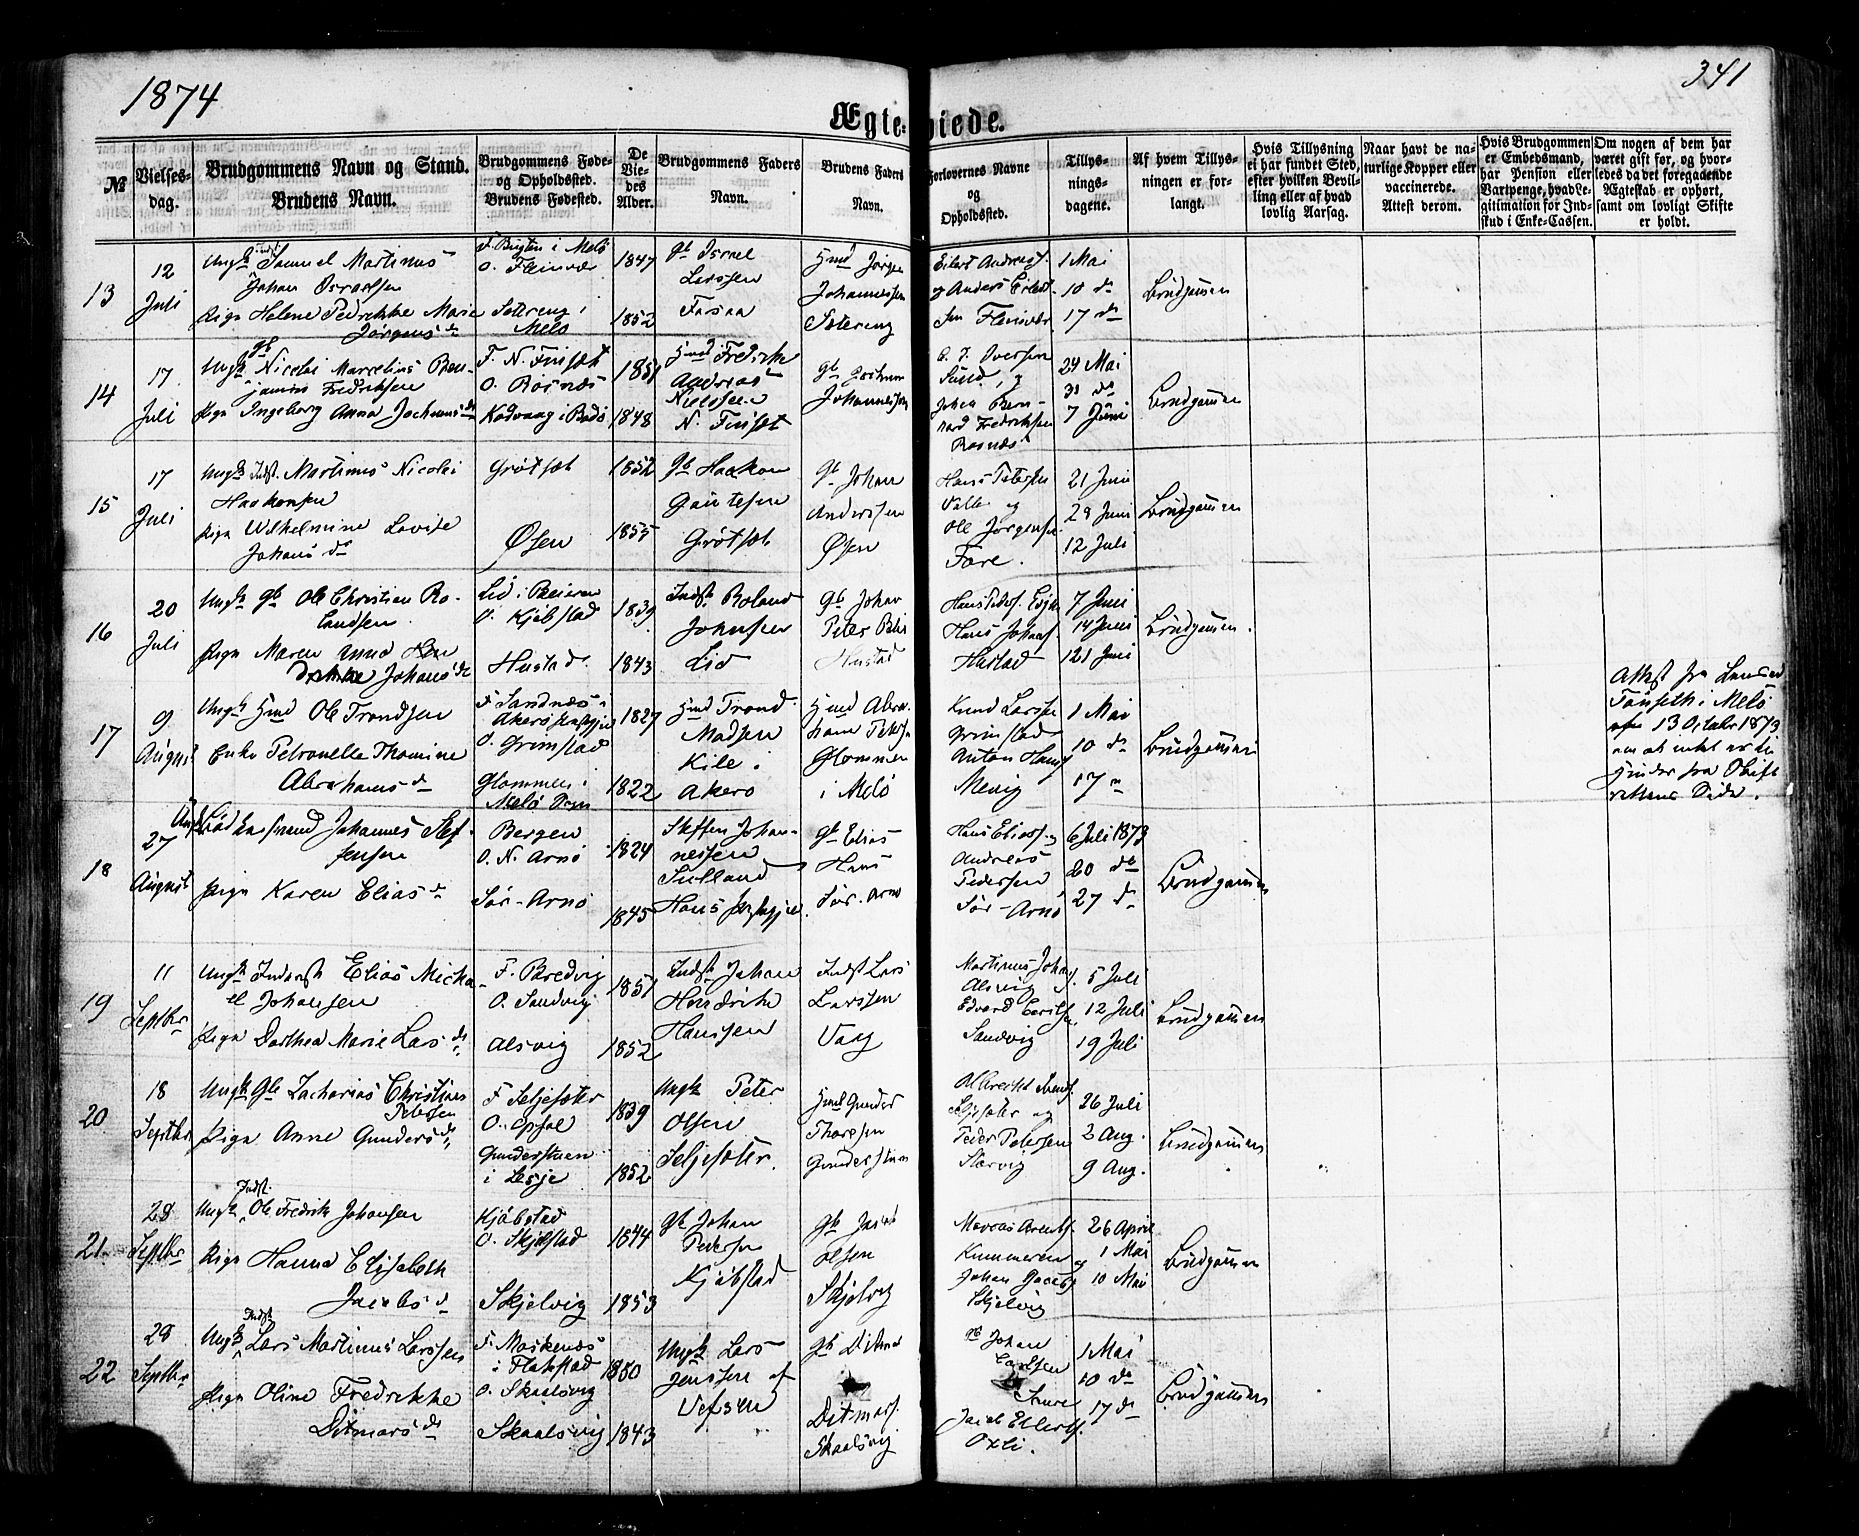 1874
341
Ægteviede.
№
Vielses-
dag.
Brudgommens Navn og Stand.
Brudens Navn.
Brudgommens Føde-
og Opholdssted.
Brudens Fødested.
De
Vie-
des
Alder.
Brudgommens Faders
Navn.
Brudens Faders
Navn.
Forlovernes Navne
og
Opholdssted.
Tillys-
nings-
dagene.
Af hvem Tillys-
ningen er for-
langt.
Hvis Tillysning
ei har fundet Sted,
efter hvilken Bevil-
ling eller af hvad
lovlig Aarsag.
Naar havt de na-
turlige Kopper eller
vaccinerede.
Attest derom.
Hvis Brudgommen
er Embedsmand,
har Pension eller
Vartpenge, hvad Le-
gitimation for Ind-
skud i Enke-Cassen.
Om nogen af dem har
været gift før, og hvor-
ledes da det foregaaende
Ægteskab er ophørt,
samt om lovligt Skifte
er holdt.
13
12
Juli
Ungk Samuel Martinus
Johan Israelsen
Pige Helene Pedrikke Marie
Jørgens d.
i Melø
O. Fleinvær
Sætereng i
Melø
1847
1852
gb Israel
Larssen
Jørgen
Johannessen
Sætereng
Eilert Andreas.
og Anders Eilert-
sen Fleinvær
1 Mai
10 do
17 do
Brudgommen
14
17
Juli
Ungk gb Nicolai Marcelius Ben-
jamin Fredriksen
Pige Ingeborg Anna Jochums d.
F. N. Finsæt
O. Bosnæs
Kodvaag i Bodø
1851
1848
Hmd Fredrik
Andreas
Nielsen
N. Finsæt
gb Jochum
Johannessen
Sund, og
Johan Bern-
hard Fredriksen
Bosnæs
24 Mai
31 do
7 Juni
Brudgommen
15
17
Juli
Ungk Indst. Martinus Nicolai
Haakonsen
Pige Wilhelmine Lovise
Johans d.
Grøtsæt
Øsen
1852
1855
gb Haakon
Gautesen
Grøtsæt
gb Johan
Anderssen
Øsen
Hans Petersen
Valle og
Ole Jørgensen
Fore.
21 Juni
28 Juni
12 Juli
Brudgommen
16
20
Juli
Ungk gb Ole Christian Ro-
landsen
Pige Maren
Johans d.
Lid i Beieren
O. Kjøbstad
Hustad
1839
1843
Indst. Roland
Johnsen
Lid
gb Johan
Peter
Hustad
Hans Johans.
Hustad
7 Juni
14 Juni
21 Juni
Brudgommen.
17
9
August
Ungk Hmd Ole Trondsen
Enke Petronelle Thomine
Abrahams d.
F. Sandnæs i
Akerø Præstegj.
O. Grimstad
Glommen i
Melø
1827
1822
Hmd Trond
Madsen
Kile.
Akerø
Hmd Abra-
ham Peters.
Glommen
i Melø
Knud Larsen
Grimstad
Anton Hans.
Mevig
1 Mai
10 do
17 "
Brudgommen
Attest fra Lensmd
Tønseth i Melø
af 13 October 1873
om at intet er til
Hinder fra Skifte
rettens Side.
18
27
August
Johannes Stef-
fensen
Pige Karen Elias d.
Bergen
O. N. Arnø
Sør-Arnø
1824
1845
Steffen Johan-
nessen
gb Elias
Hans
Sør-Arnø
Hans Elias. og
Andreas
Pedersen
Sør-Arnø
6 Juli 1873
20 do
27 do
Brudgommen
19
11
Septbr
Ungk Inderst Elias Micha-
el Johansen
Pige Dorthea Marie Lars d.
F. Bredvig
O. Sandvig
Alsvig
1851
1852
Indst. Johan
Hendrik
Hanssen
Indst Lars
Larssen
Vaag
Martinus Johans.
Alsvig
Edvard
Sandvig
5 Juli
12 Juli
19 Juli
Brudgommen
20
18
Septbr
Ungk gb Zacharias Christian
Petersen
Pige Anne Gunders d.
F. Seljesæter
O. Opsal
Gunderstuen
i Lesje
1839
1852
Ungk Peter
Olsen
Seljesæter.
Hmd Gunder
Thoresen
Gunderstuen
Seljesæter og
Peder Petersen
Størvig
26 Juli
2 Aug.
9 Aug.
Brudgommen
21.
28
Septbr
Ungk Indst. Ole Fredrik Johansen
Pige Hanna Elisabeth
Jacobs d.
Kjøbstad
O. Skjelstad
Skjelvig
1844
1853
gb Johan
Pedersen
Kjøbstad
gb Jacob
Olsen
Skjelvig
Kummeren og
Johan Jacobs.
Skjelvig
26 April
1 Mai
10 Mai
Brudgommen
22
28
Septbr
Ungk Indst Lars Martinus Larssen
Pige Oline Fredrikke
Ditmars d.
F. Moskenæs
i Flakstad
O. Skaalsvig
Skaalsvig
1850
1843
Ungk Lars
Jenssen af
Vefsen
gb Ditmar
Ditmars.
Skaalsvig
gb Johan
Carlsen
Jacob Ellerts.
Oxli.
1 Mai
10 do
17 do
Brudgommen